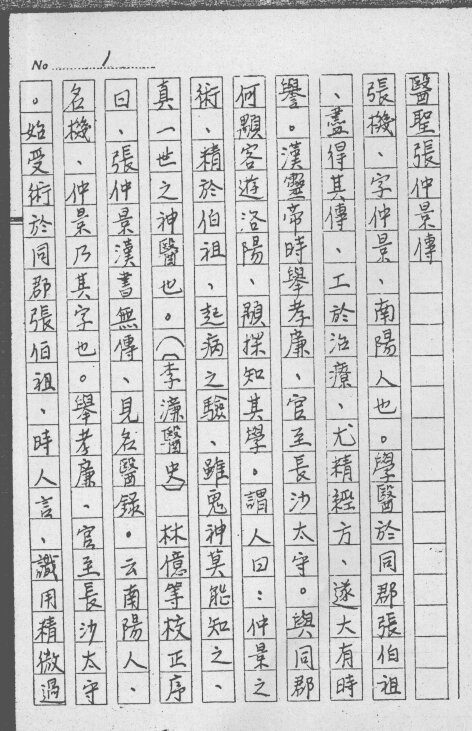 No 1
醫聖張仲景傳
張機、字仲景、南陽人也。學醫於同郡張伯祖
、盡得其傳、工於治療、尤精經方、遂大有時
譽。漢靈帝時舉孝廉、官至長沙太守。與同郡
何顒客遊洛陽、顒探知其學。謂人曰：仲景之
術、精於伯祖、起病之驗、雖鬼神莫能知之、
真一世之神醫也。（李濂醫史）林億等校正序
曰、張仲景漢書無傳、見名醫錄。云南陽人、
名機、仲景乃其字也。舉孝廉、官至長沙太守
。始受術於同郡張伯祖、時人言、識用精微過